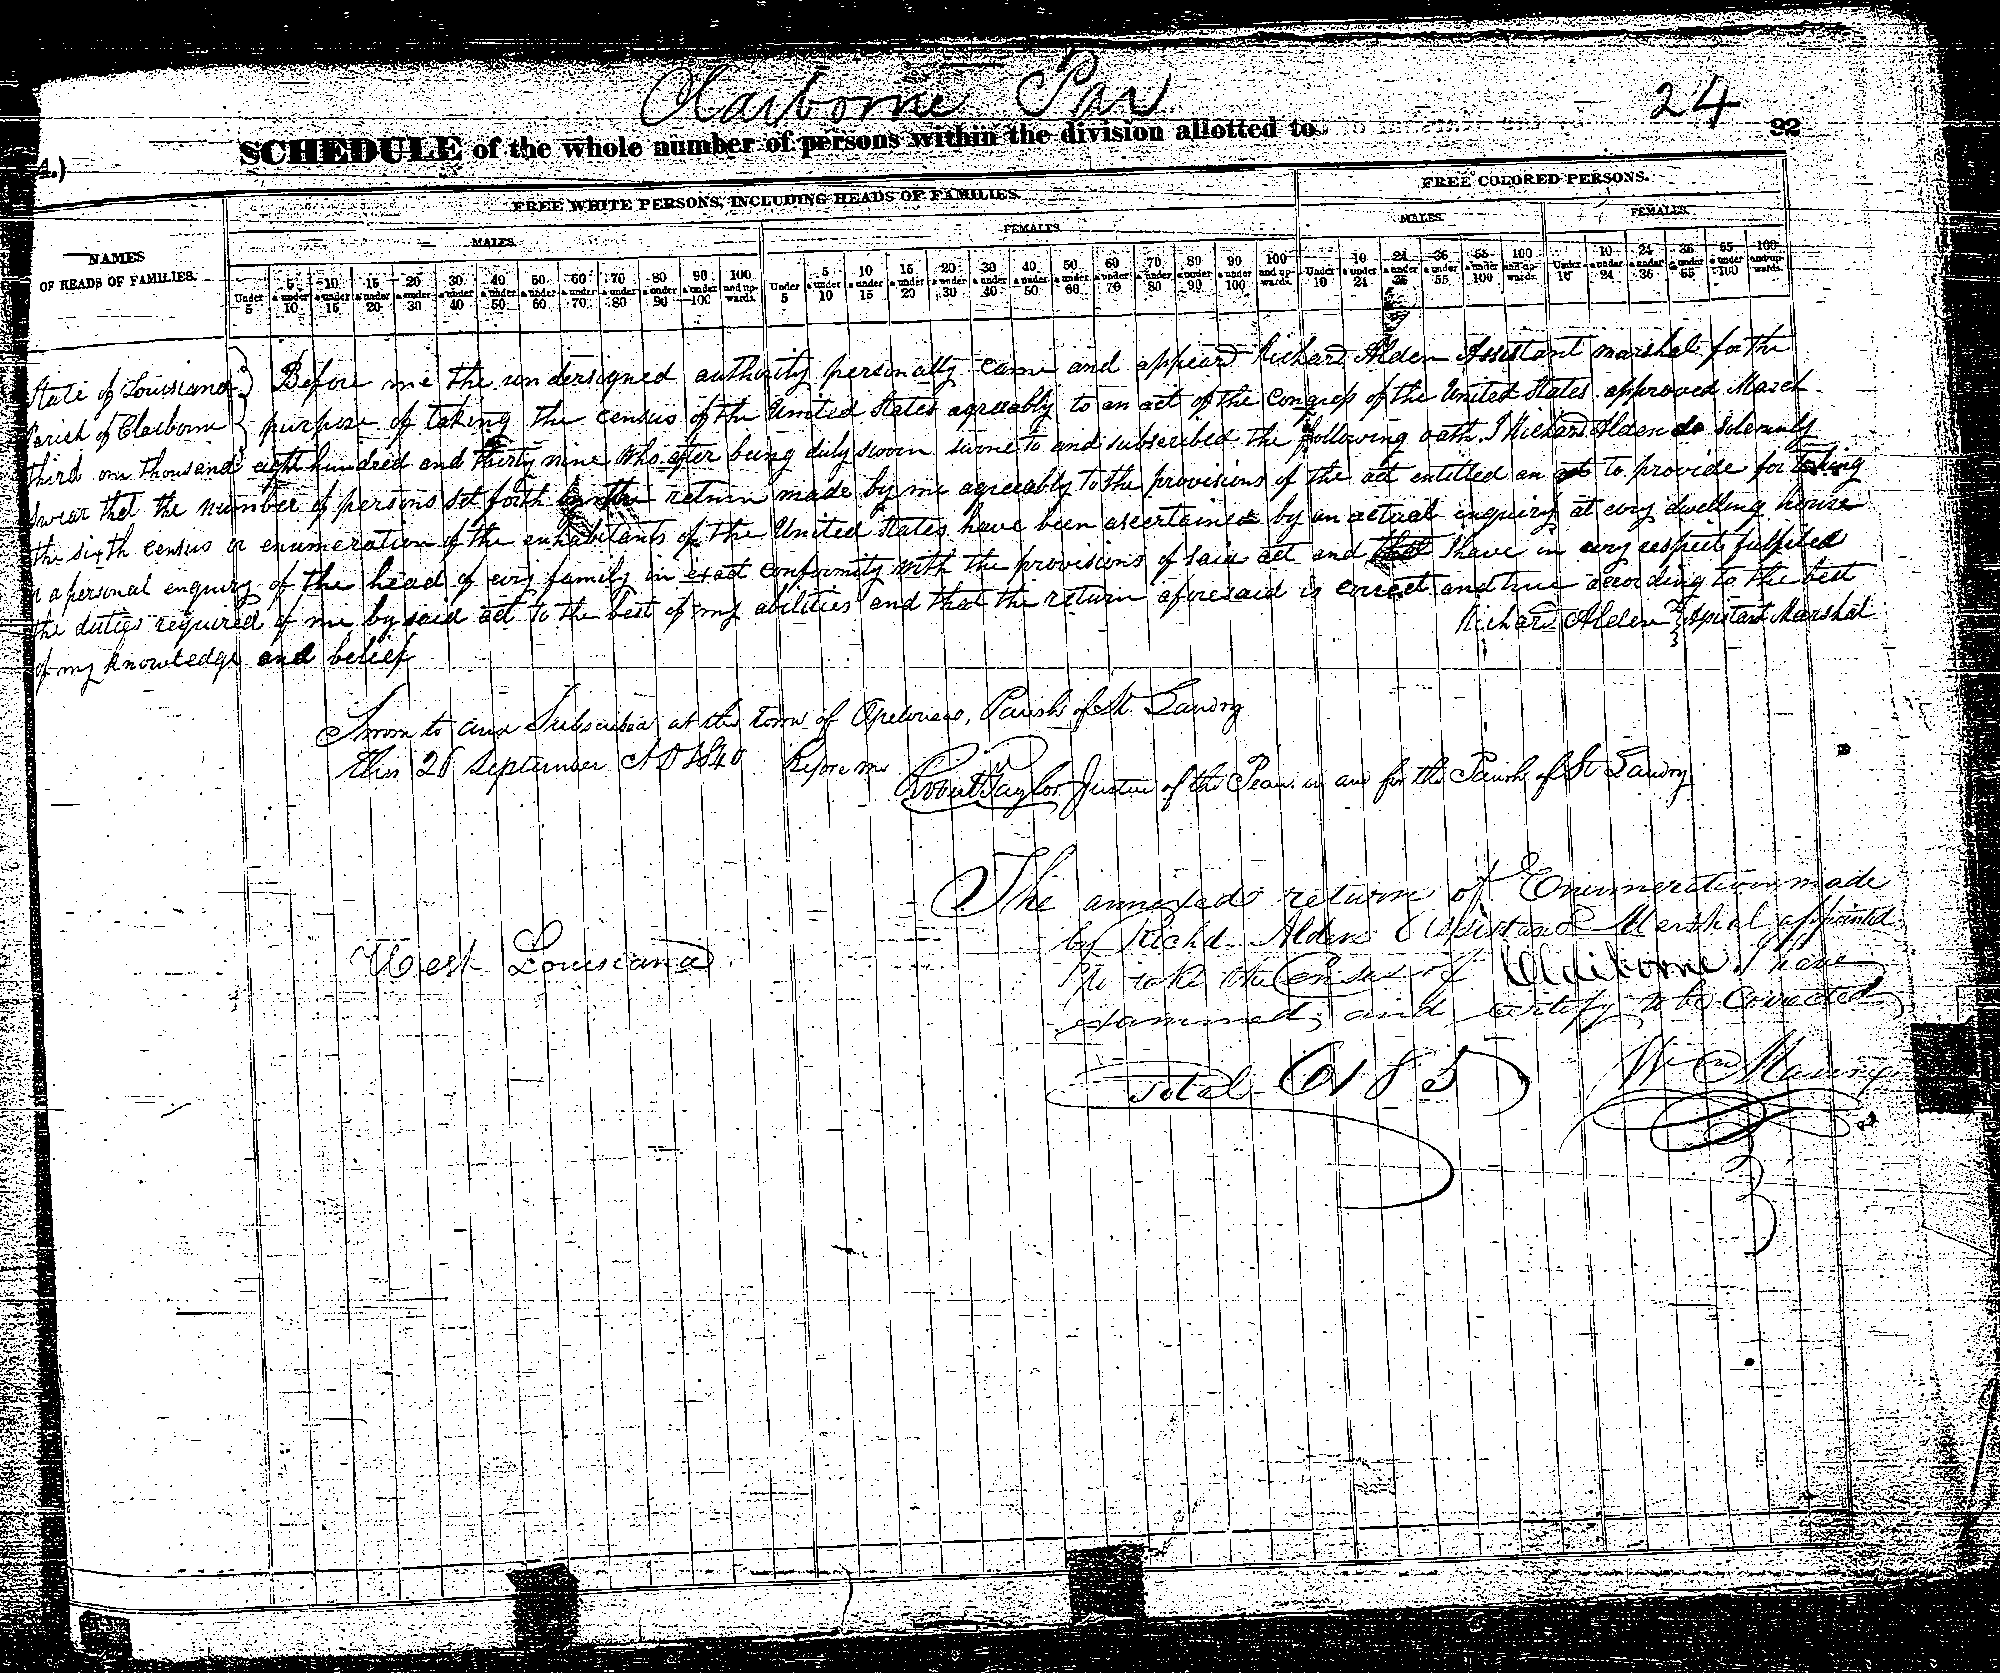 Claiborne Par
24
SCHEDULE of the whole number of persons within the division allotted to
92
FREE WHITE PERSONS, INCLUDING HEADS OF FAMILIES.
FREE COLORED PERSONS.
MALES.
FEMALES.
MALES.
FEMALES.
NAMES
OF HEADS OF FAMILIES.
Under 5
5 & under 10
10 & under 15
15 & under 20
20 & under 30
30 & under 40
40 & under 50
50 & under 60
60 & under 70
70 & under 80
80 & under 90
90 & under 100
100 and upwards.
Under 5
5 & under 10
10 & under 15
15 & under 20
20 & under 30
30 & under 40
40 & under 50
50 & under 60
60 & under 70
70 & under 80
80 & under 90
90 & under 100
100 and upwards.
Under 10
10 & under 24
24 & under 36
36 & under 55
55 & under 100
100 and upwards.
Under 10
10 & under 24
24 & under 36
36 & under 55
55 & under 100
100 and upwards.
State of Louisiana } Before me the undersigned authority personally came and appeard Richard Alden Assistant marshal for the
Parish of Claiborne } purpose of taking the census of the United States agreeably to an act of the Congress of the United States approved March
third one thousand eight hundred and thirty nine who after being duly sworn to and subscribed the following oath. I Richard Alden do solemnly
swear that the number of persons set forth return made by me agreeably to the provisions of the act entitled an act to provide for taking
the sixth census or enumeration of the enhabitants of the United States have been ascertained by an actual inquiry at evry dwelling house
or a personal enquiry of the head of evry family in exact conformity with the provisions of said act and that I have in evry respect fulfiled
the duties required of me by said act to the best of my abilities and that the return aforesaid is correct and true according to the best
of my knowledge and belief
Richard Alden } Assistant Marshal
Sworn to and Subscribed at the town of Opelousas, Parish of St. Landry
this 26 September AD 1840 before me
Robert Taylor Justice of the Peace in and for the Parish of St Landry
The annexed return of Enumeration made
by Richd. Alden Assistant Marshal appointed
to take the Census of Claiborne I have
examined, and certify to be Corrected
West Louisiana
Total 6185
Wm